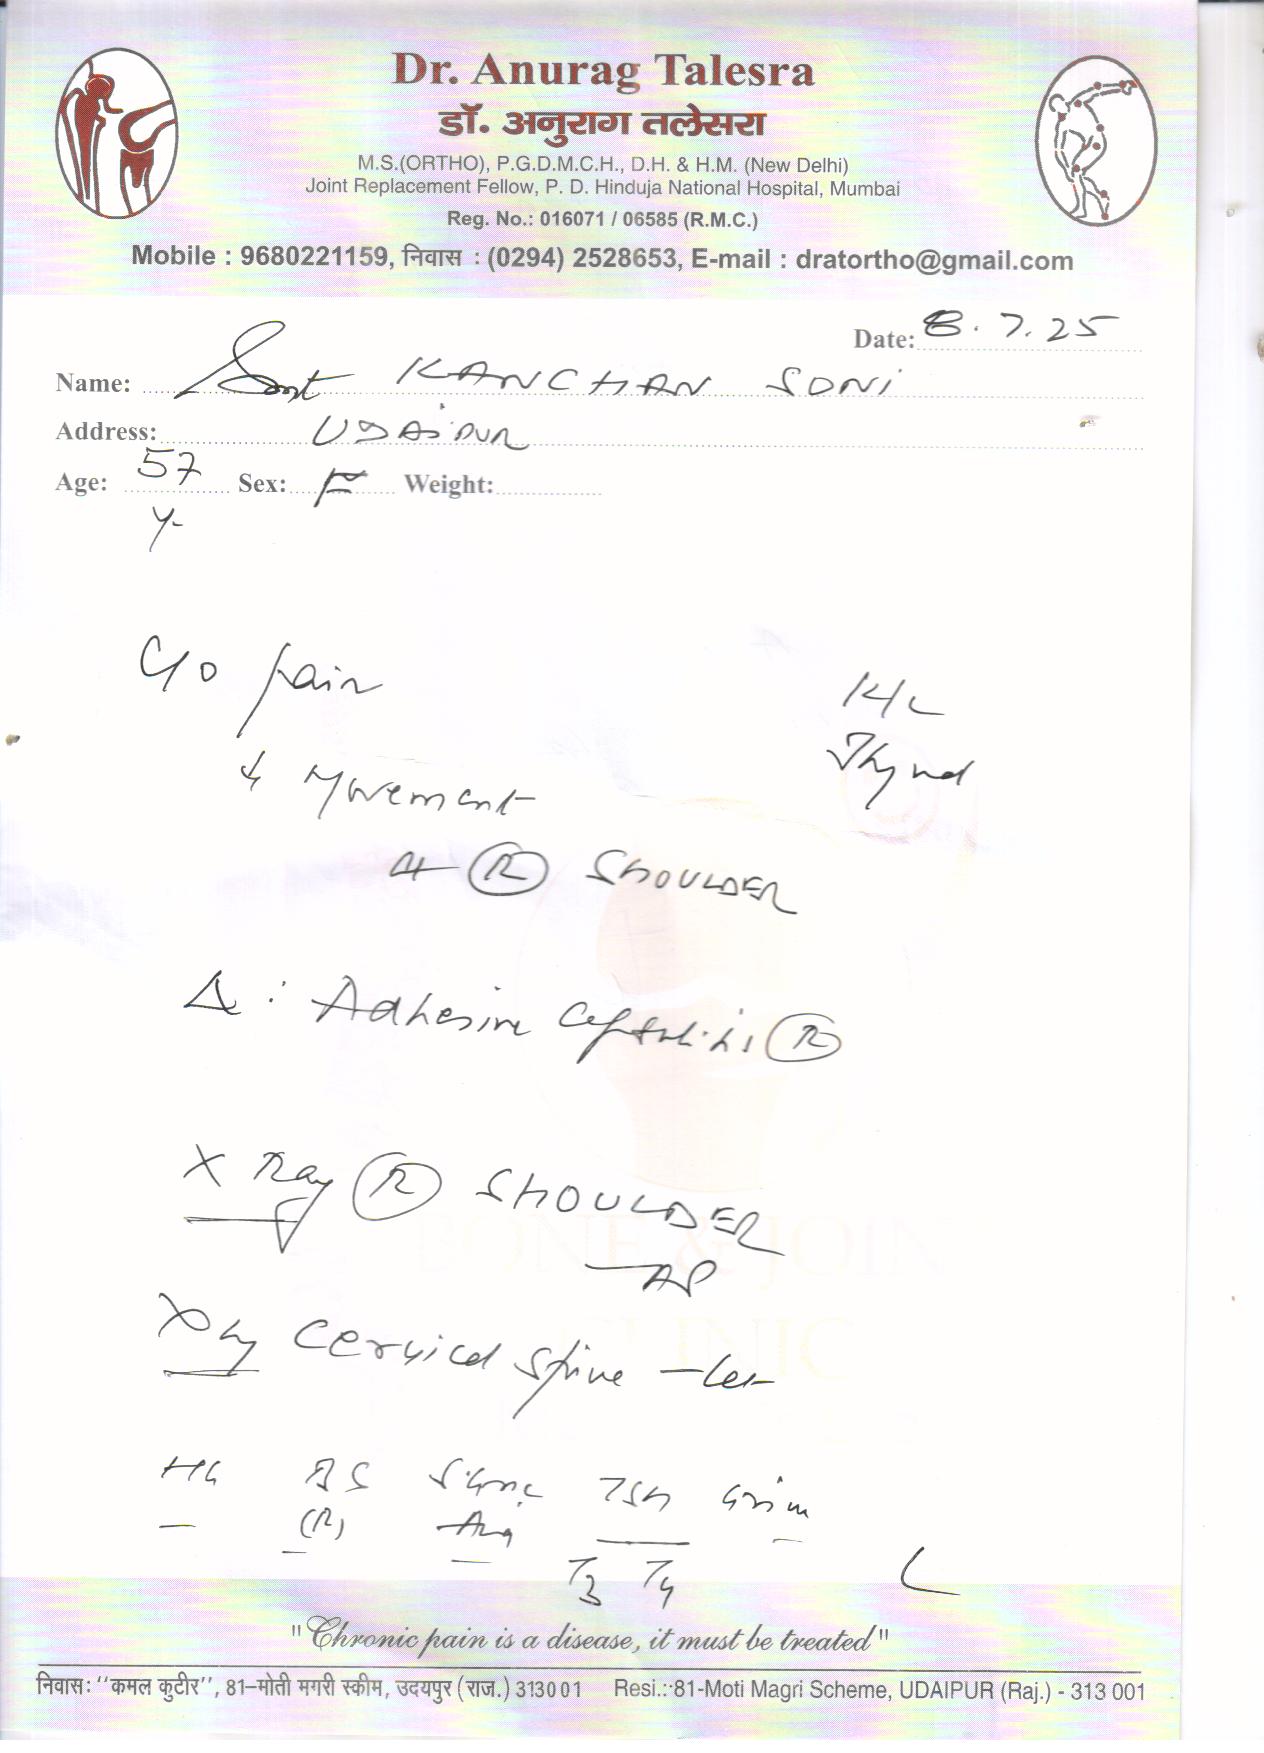 Dr. Anurag Talesra
डॉ. अनुराग तलेसरा
M.S.(ORTHO), P.G.D.M.C.H., D.H. & H.M. (New Delhi)
Joint Replacement Fellow, P. D. Hinduja National Hospital, Mumbai
Reg. No.: 016071 / 06585 (R.M.C.)
Mobile : 9680221159, निवास : (0294) 2528653, E-mail : dratortho@gmail.com
Date: 8.7.25
Name: Smt KANCHAN SONI
Address: UDAIPUR
Age: 57 Sex: F Weight:
Y
C/O pain
↓ Movement
(R) SHOULDER
K/C
Thyroid
Δ : Adhesive Capsulitis (R)
X Ray (R) SHOULDER
- AP
X Ray Cervical Spine - Lat
BONE & JOIN
CLINIC
Hb BS TSH
(R)
T3 T4
"Chronic pain is a disease, it must be treated"
निवास: "कमल कुटीर", 81-मोती मगरी स्कीम, उदयपुर (राज.) 313001 Resi.: 81-Moti Magri Scheme, UDAIPUR (Raj.) - 313 001